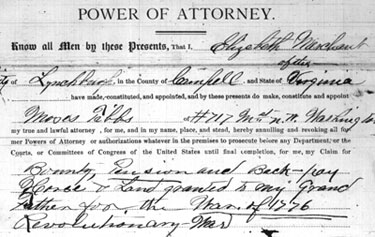 POWER OF ATTORNEY.
Know all Men by these Presents, That I, Elizabeth Merchant
of the
ty of Lynchburg, in the County of Campbell, and State of Virginia
have made, constituted, and appointed, and by these presents do make, constitute and appoint
Moves Tibbs #717 N.W. Washing
my true and lawful attorney, for me, and in my name, place, and stead, hereby annulling and revoking all for
mer Powers of Attorney or authorizations whatever in the premises to prosecute before any Department; or the
Courts, or Committees of Congress of the United States until final completion, for me, my Claim for
Bounty, Pension and Back-pay
& Land granted to my Grand
Father for the War of 1776
Revolutionary War